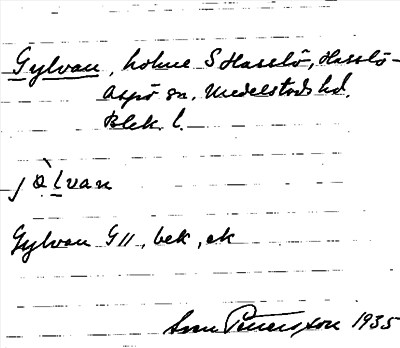 Gylvan, holme S Hasslö, Hasslö-
Aspö sn, Medelstads hd.
Blek. l.
jö̀lvan
Gylvan GII, bek, ek
Pettersson 1935